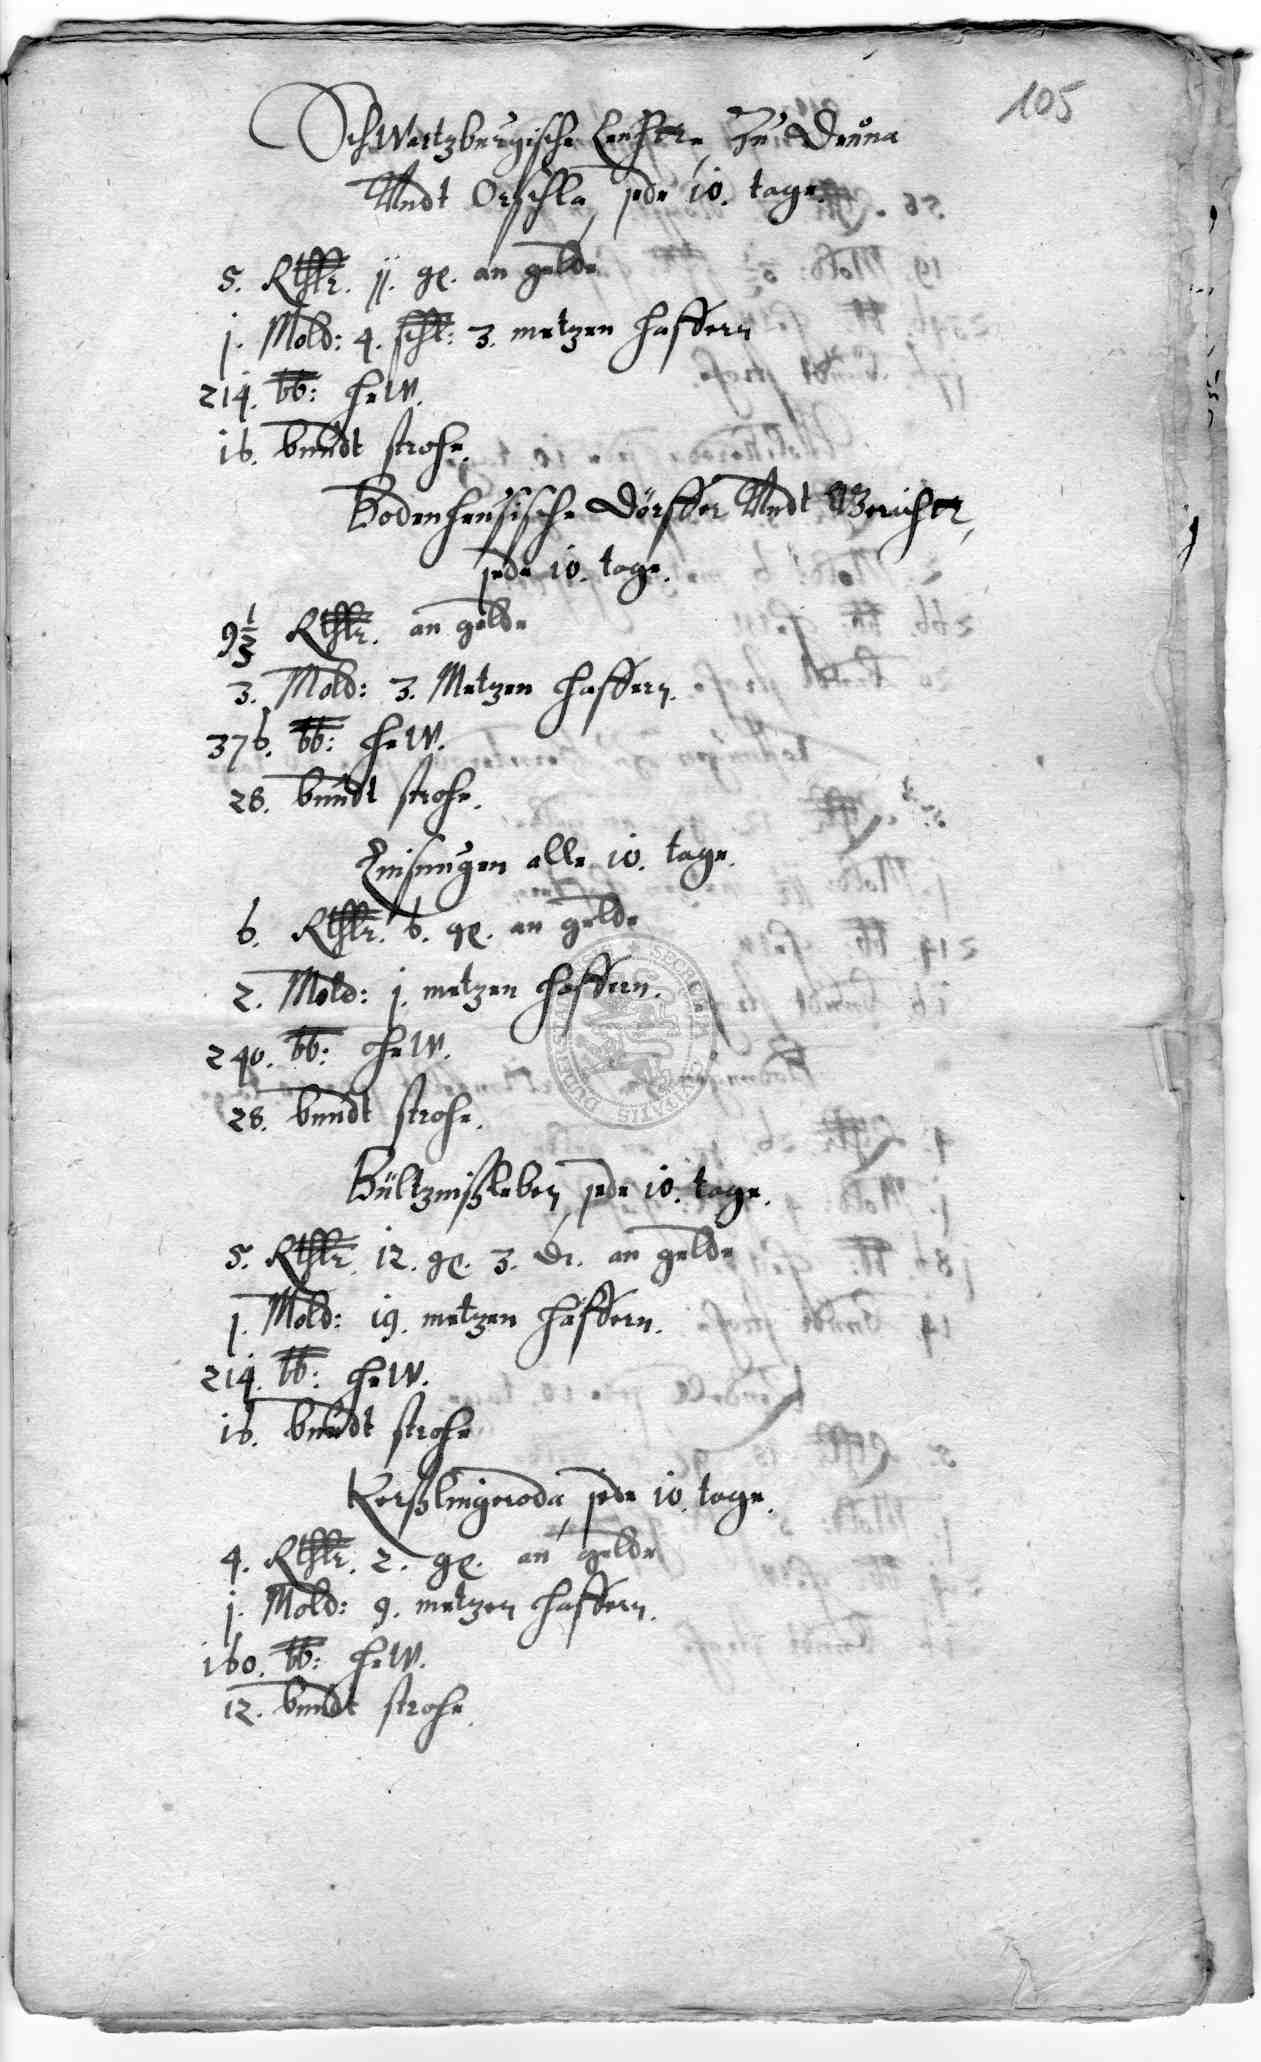 105
Schwartzburgische Leuthe, Zu Deüna
Undt Orschla, jede 10. tage.
5. Rthlr. jj. gl. an gelde
j. Mold: 4. schl: 3. metzen haffern
214. lb: hew.
16. bundt strohe.
Bodenheusische Dörffer Undt Gerichte,
jede 10. tage.
9 2/3 Rthlr. an gelde
3. Mold: 3. Metzen haffern.
376. lb: hew.
28. bundt strohe.
alle 10. tage.
6. Rthlr. 6. gl. an gelde
2. Mold: j. metzen haffern.
240. lb: hew.
28. bundt strohe.
Bültzingßleben, jede 10. tage.
5. Rthlr. 12. gl. 3. d. an gelde
j. Mold: 19. metzen haffern.
214. lb: hew.
16. bundt strohe
Kerßlingeroda, jede 10. tage.
4. Rthlr. 2. gl. an gelde
j. Mold: 9. metzen haffern.
160. lb: hew.
12. bundt strohe.